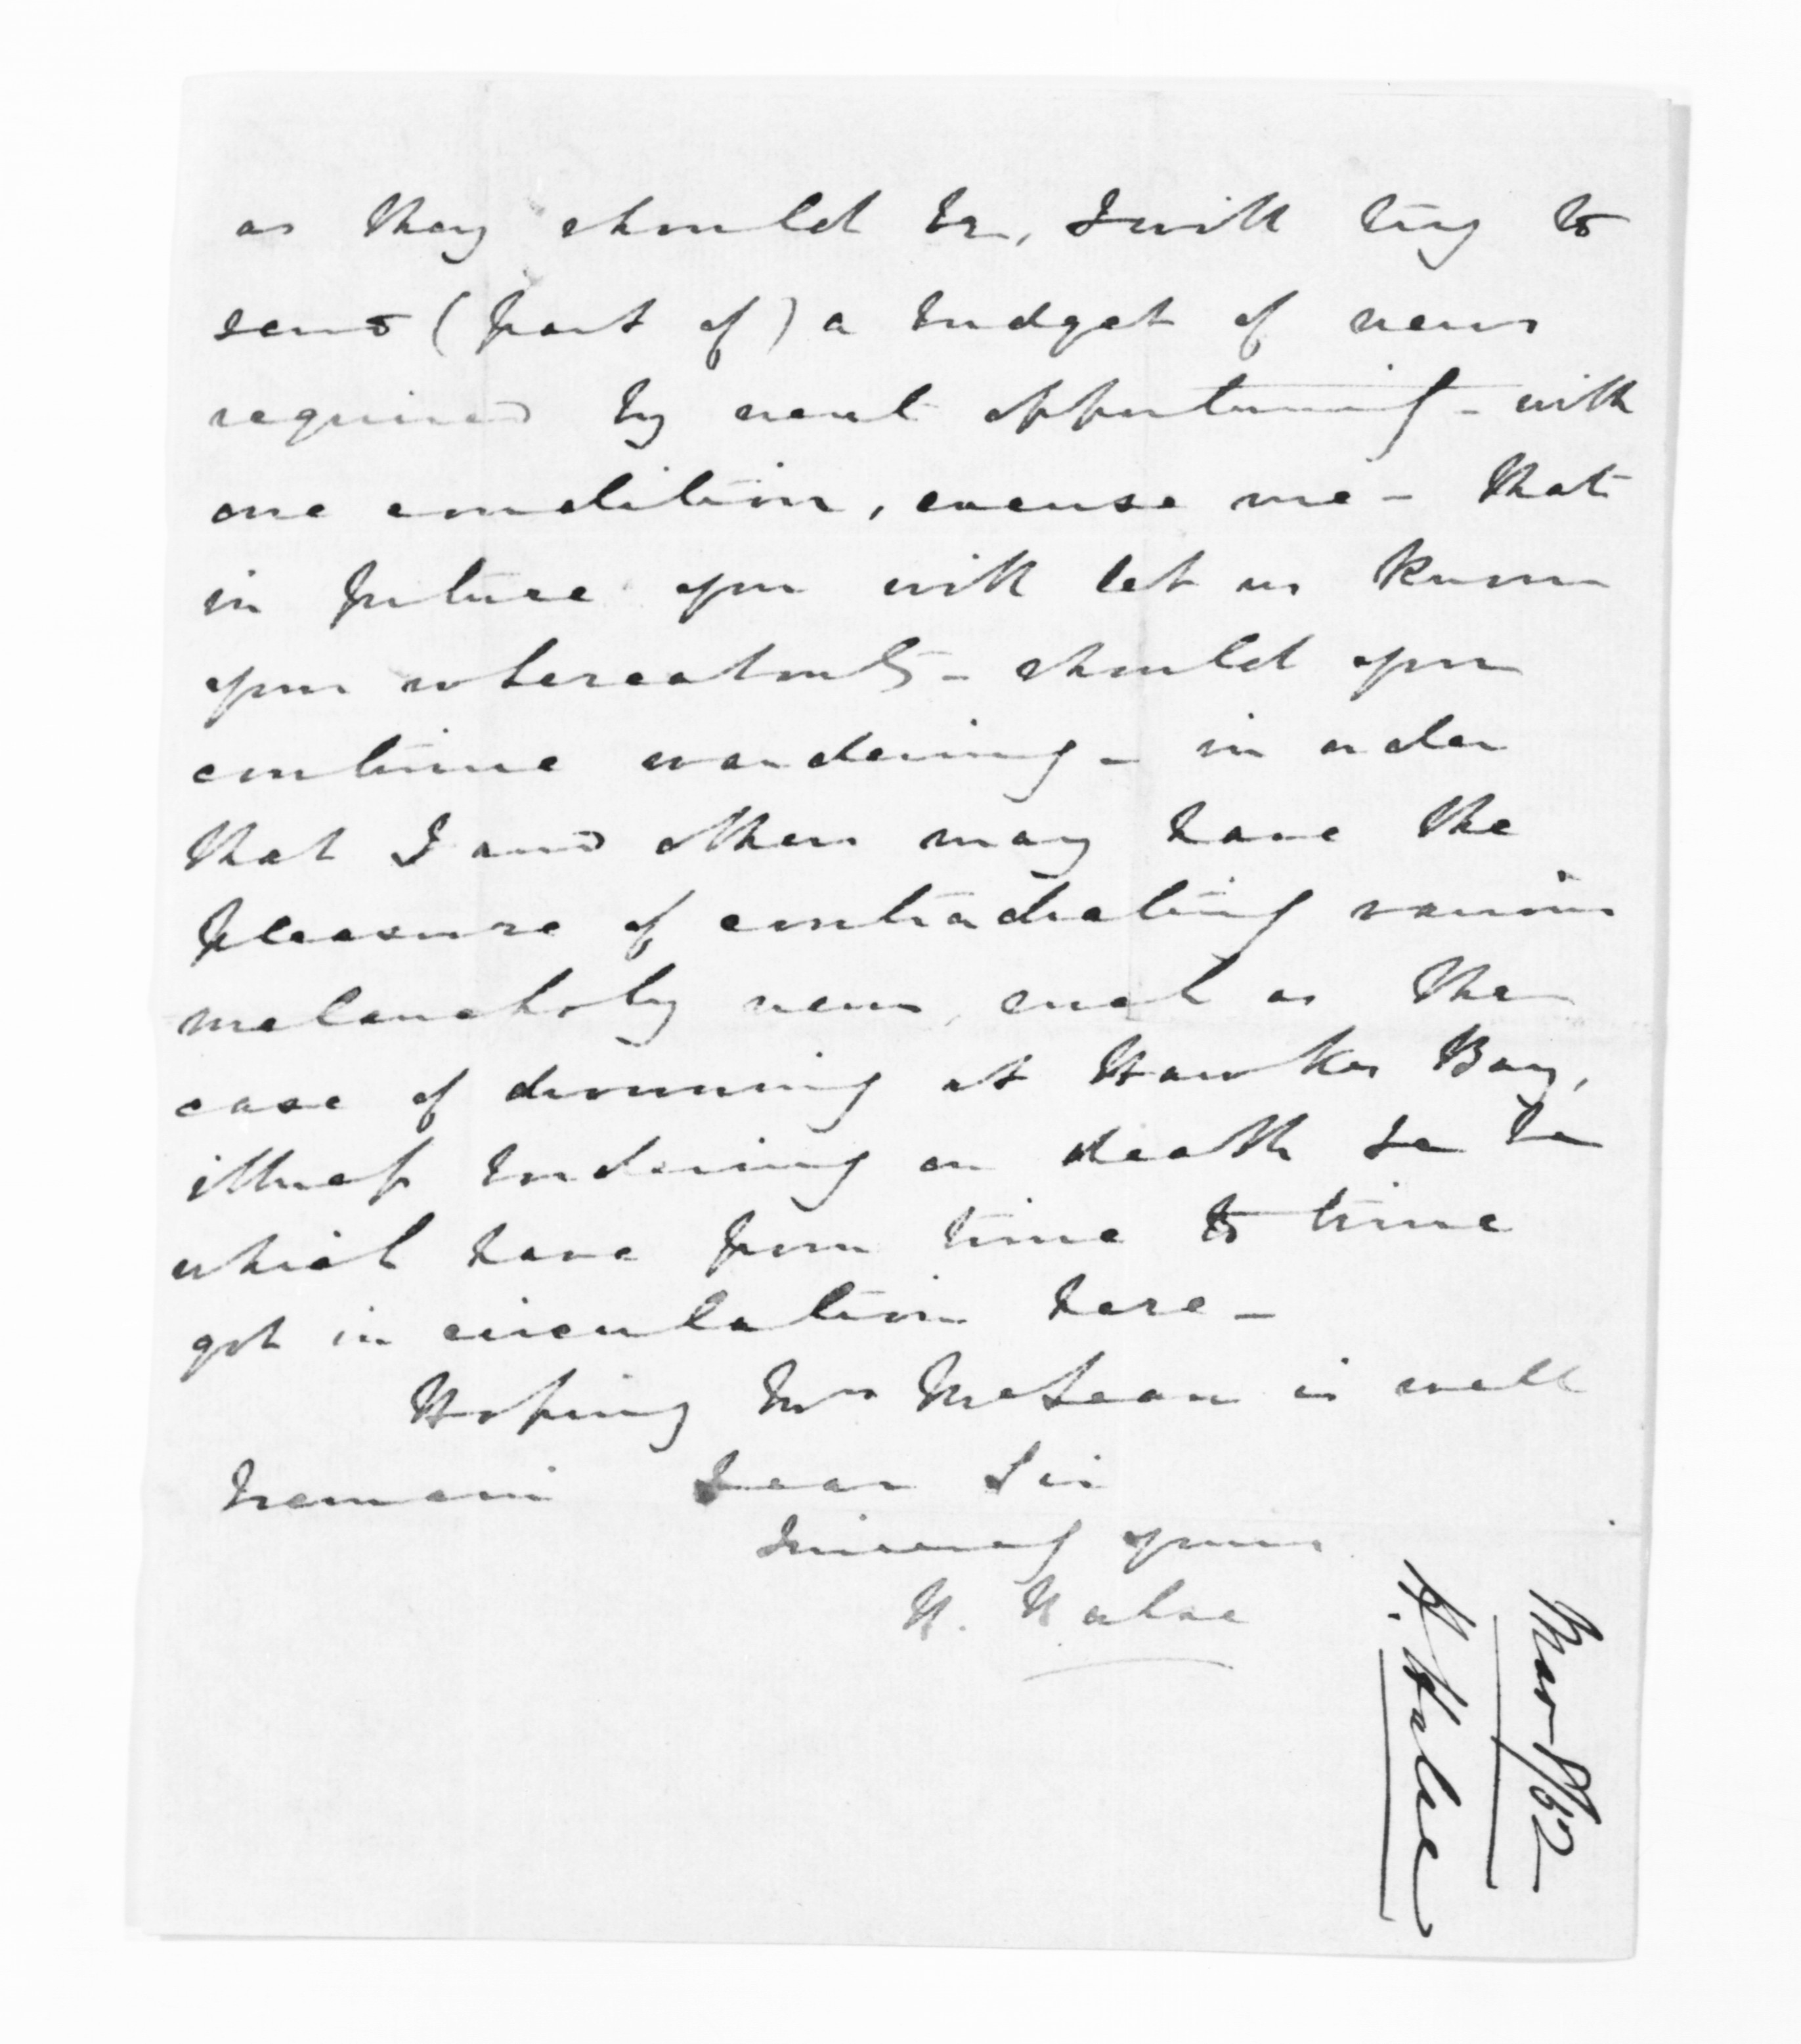 as they should be, I will try to
send (part of) a budget of news
required by next opportunity - with
one condition, excuse me - that
in future you will let us know
your whereabouts - should you
continue wandering - in order
that I and others may have the
pleasure of contradicting various
melancholy news, such as the
case of drowning at Hawkes Bay,
illness bordering on death &c &c
which have from time to time
got in circulation here -
Hoping Mrs McLean is well
I remain Dear Sir
Sincerely yours
H. Halse
H. Halse